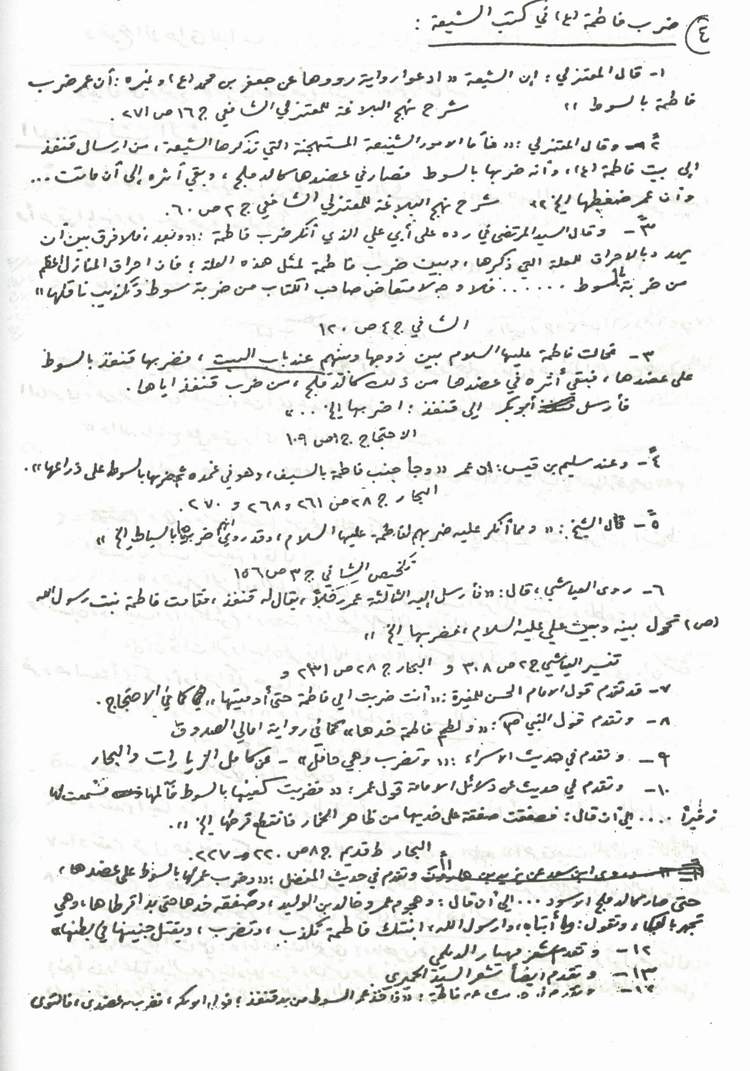 ٤) ضرب فاطمة (ع) في كتب الشيعة :
١- قال المعتزلي : إن الشيعة « ادعوا رواية رووها عن جعفر بن محمد (ع) وغيره : أن عمر ضرب
فاطمة بالسوط » شرح نهج البلاغة للمعتزلي الشافعي ج ١٦ ص ٢٧١ .
٢- وقال المعتزلي : « فأما الامور الشنيعة المستهجنة التي تذكرها الشيعة ، من ارسال قنفذ
الى بيت فاطمة (ع) ، وأنه ضربها بالسوط فصار في عضدها كالدملج ، وبقي أثره إلى أن ماتت ...
وأن عمر ضغطها إلخ » شرح نهج البلاغة للمعتزلي الشافعي ج ٢ ص ٦٠
٣- وقال السيد المرتضى في رده على أبي علي الذي أنكر ضرب فاطمة : « وبعد ، فلا فرق بين أن
يهدد بالاحراق للعلة التي ذكرها ، وبين ضرب فاطمة لمثل هذه العلة ؛ فان احراق المنازل أعظم
من ضربة بالسوط ...... فلا وجه لامتعاض صاحب الكتاب من ضربة سوط وتكذيب ناقلها »
الشافي ج ٤ ص ١٢٠
٣- فحالت فاطمة عليها السلام بين زوجها وبينهم عند باب البيت ، فضربها قنفذ بالسوط
على عضدها ، فبقي أثره في عضدها من ذلك كالدملج ، من ضرب قنفذ اياها .
فأرسل أبو بكر الى قنفذ : اضربها إلخ ... »
الاحتجاج ج ١ ص ١٠٩
٤- وعند سليم بن قيس : إن عمر « وجأ جنب فاطمة بالسيف ، وهو في غمده ثم ضربها بالسوط على ذراعها » .
البحار ج ٢٨ ص ٢٦١ و ٢٦٨ و ٢٧٠
٥- قال الشيخ : « ومما أنكر عليه ضربهم لفاطمة عليها السلام ، وقد روي أنهم ضربوها بالسياط إلخ »
تلخيص الشافي ج ٣ ص ١٥٦
٦- روى العياشي ؛ قال : « فأرسل إليه الثالثة عمر رجلاً ، يقال له قنفذ ، فقامت فاطمة بنت رسول الله
(ص) تحول بينه وبين علي عليه السلام فضربها إلخ »
تفسير العياشي ج ٢ ص ٣٠٨ و البحار ج ٢٨ ص ٢٣١ و
٧- قد تقدم قول الامام الحسن للمغيرة : « أنت ضربت الى فاطمة حتى أدميتها » كما في الاحتجاج .
٨- وتقدم قول النبي ص : « ولطم فاطمة خدها » كما في رواية امالي الصدوق
٩- وتقدم في حديث الاسراء : « وتضرب وهي حامل » - عن كامل الزيارات والبحار
١٠- وتقدم في حديث عن دلائل الامامة قول عمر : « فضربت كفيها بالسوط فألمها فسمعت لها
زفيراً .... إلى ان قال : فصفقت صفقة على خديها من ظاهر الخمار فانقطع قرطها إلخ » .
البحار ط قديم ج ٨ ص ٢٢٠ و ٢٢٧ .
وتقدم في حديث المفضل : « وضرب عمر لها بالسوط على عضدها ،
حتى صار كالدملج الاسود ... الى أن قال : وهجوم عمر وخالد بن الوليد ، وصفقه خدها حتى بدا قرطاها ، وهي
تجهر بالبكاء وتقول : وا أبتاه ، وا رسول الله ، ابنتك فاطمة تكذب ، وتضرب ، ويقتل جنينها في بطنها »
١٢- وتقدم شعر مهيار الديلمي
١٣- وتقدم أيضاً شعر السيد الحميري
فاطمة : « فأخذ عمر السوط من يد قنفذ ؛ مولى ابي بكر ، فضرب به عضدي ، فالتوى